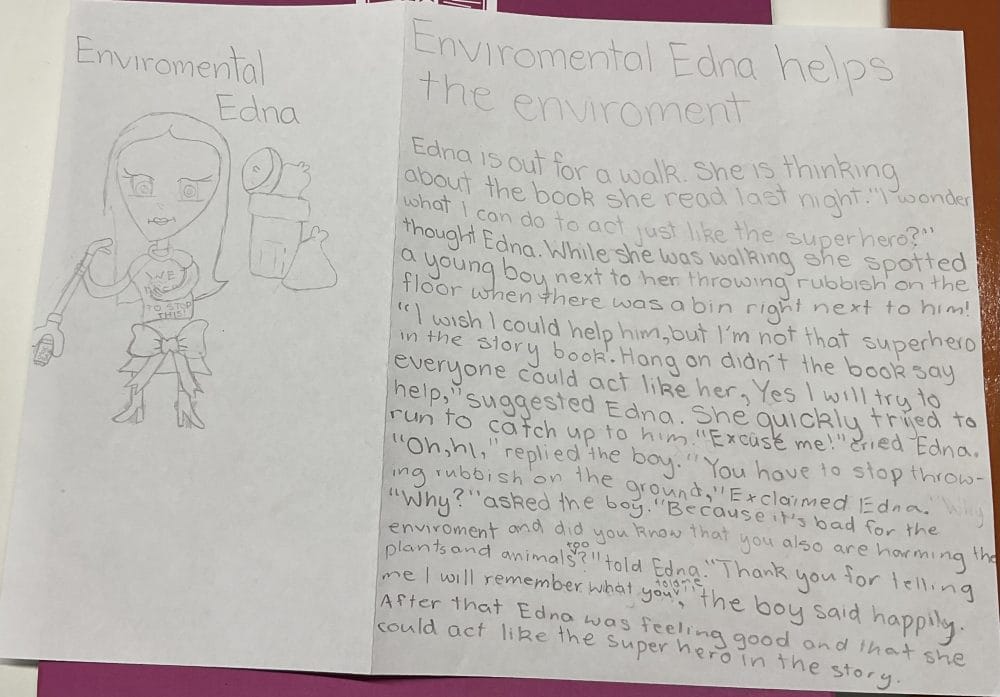 Enviromental
Edna
WE
NEED
TO STOP
THIS!
Enviromental Edna helps
the enviroment
Edna is out for a walk. She is thinking
about the book she read last night. "I wonder
what I can do to act just like the superhero?"
thought Edna. While she was walking she spotted
a young boy next to her throwing rubbish on the
floor when there was a bin right next to him!
"I wish I could help him, but I'm not that superhero
in the story book. Hang on didn't the book say
everyone could act like her, Yes I will try to
help," suggested Edna. She quickly tryed to
run to catch up to him. "Excuse me!" cried Edna.
"Oh, hi," replied the boy. "You have to stop throw-
ing rubbish on the ground," Exclaimed Edna. "Why
"Why?" asked the boy. "Because it's bad for the
enviroment and did you know that you also are harming the
plants and animals too?" told Edna. "Thank you for telling
me I will remember what you told me," the boy said happily.
After that Edna was feeling good and that she
could act like the super hero in the story.